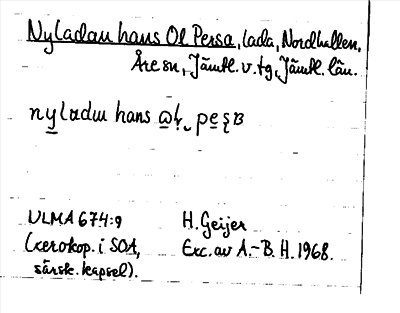 Nyladan hans Ol Persa, lada, Nordhallen,
Åre sn, Jämtl. v. tg, Jämtl. län.
hans
ULMA 674:9 H. Geijer
(xerokop. i SOA, Exc. av A.-B. H. 1968.
särsk. kapsel).